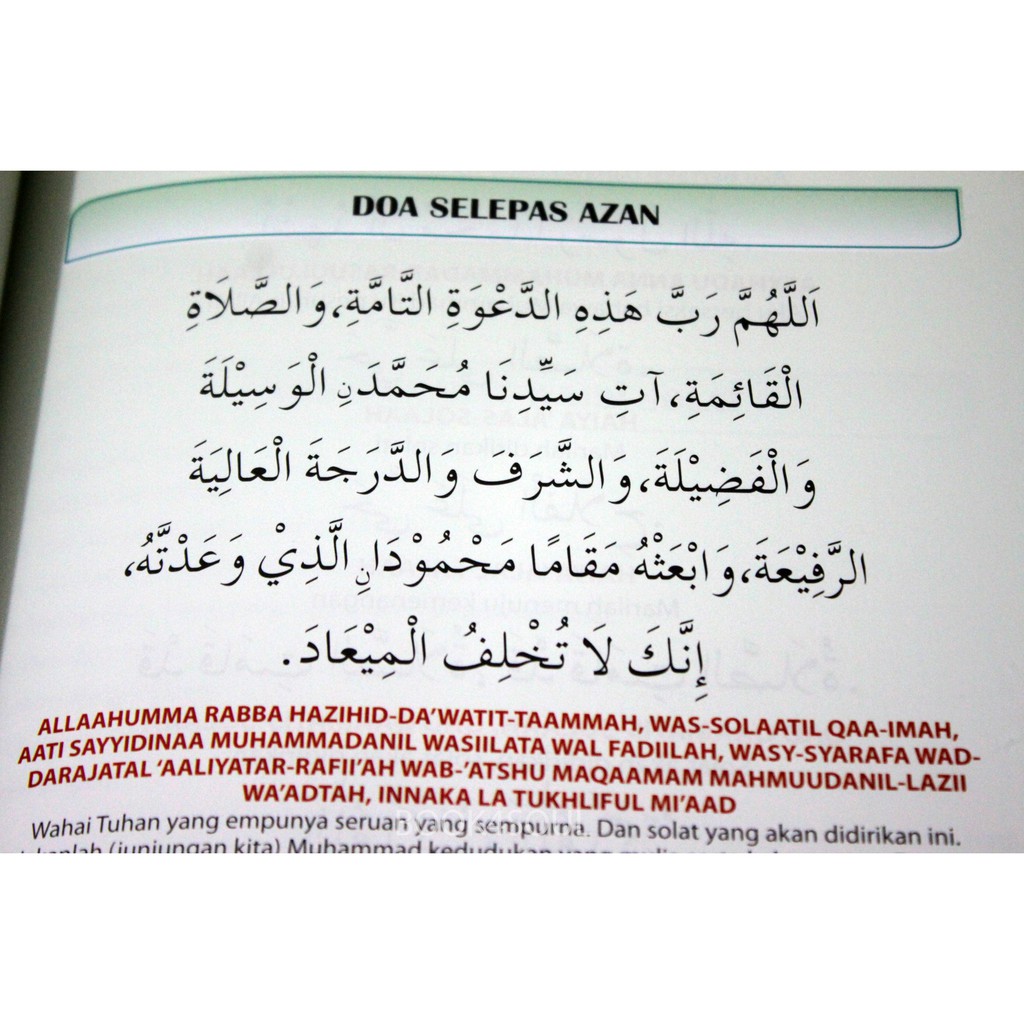 DOA SELEPAS AZAN
اَللَّهُمَّ رَبَّ هَذِهِ الدَّعْوَةِ التَّامَّةِ، وَالصَّلَاةِ
الْقَائِمَةِ، آتِ سَيِّدِنَا مُحَمَّدَنِ الْوَسِيْلَةَ
وَالْفَضِيْلَةَ، وَالشَّرَفَ وَالدَّرَجَةَ الْعَالِيَةَ
الرَّفِيْعَةَ، وَابْعَثْهُ مَقَامًا مَحْمُوْدَانِ الَّذِيْ وَعَدْتَّهُ،
إِنَّكَ لَا تُخْلِفُ الْمِيْعَادَ.
ALLAAHUMMA RABBA HAZIHID-DA'WATIT-TAAMMAH, WAS-SOLAATIL QAA-IMAH,
AATI SAYYIDINAA MUHAMMADANIL WASIILATA WAL FADIILAH, WASY-SYARAFA WAD-
DARAJATAL 'AALIYATAR-RAFII'AH WAB-'ATSHU MAQAAMAM MAHMUUDANIL-LAZII
WA'ADTAH, INNAKA LA TUKHLIFUL MI'AAD
Wahai Tuhan yang empunya seruan yang sempurna. Dan solat yang akan didirikan ini.
(junjungan kita) Muhammad kedudukan yang